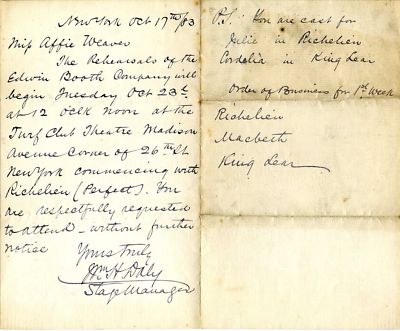 New York Oct 17th/83
Miss Affie Weaver
The Rehearsals of the
Edwin Booth Company will
begin Tuesday Oct 23d
at 12 oclk noon at the
Turf Club Theatre Madison
Avenue Corner of 26th St
New York commencing with
Richelieu (Perfect). You
are respectfully requested
to attend - without further
notice
Yours truly
Wm H Daly
Stage Manager
P.S. You are cast for
Julie in Richelieu
Cordelia in King Lear
Order of Business for 1st Week
Richelieu
Macbeth
King Lear